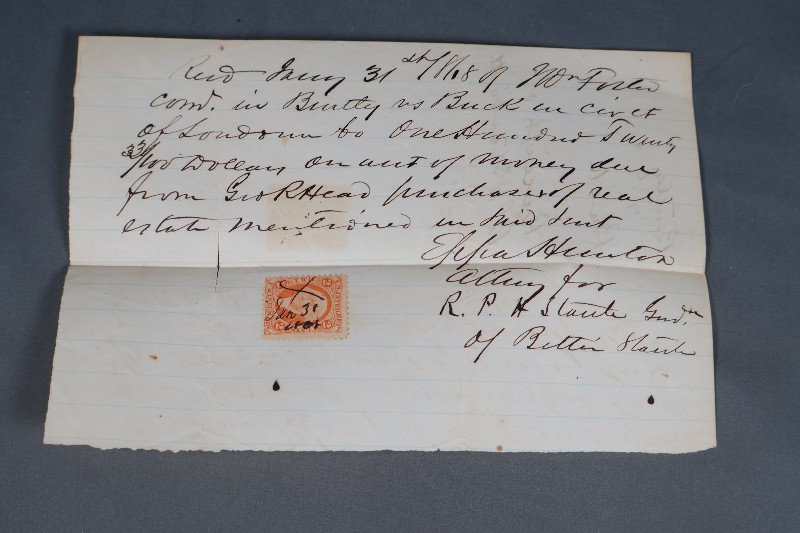 Recd Jany 31st 1868 of Wm Foster
comr. in Beatty vs Buck in circt
of Loudoun co One Hundred & Twenty
33/100 Dollars on acct of money due
from Geo R Head purchaser of real
estate mentioned in said suit
Eppa Hunton
Atty for
R. P. H Staute Gudn
of Bettie Staute
Jan 31
1868